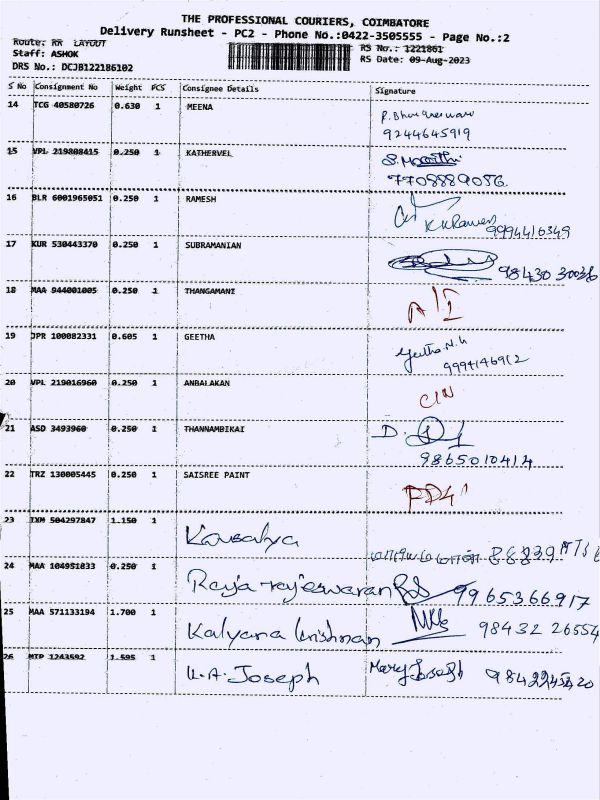 THE PROFESSIONAL COURIERS, COIMBATORE
Delivery Runsheet - PC2 - Phone No.:0422-3505555 - Page No.:2
Route: RR LAYOUT
RS No.: 1221861
Staff: ASHOK
RS Date: 09-Aug-2023
DRS No.: DCJB122186102
S No Consignment No Weight PCS Consignee Details Signature
14 TCG 40580726 0.630 1 MEENA
9244645919
15 VPL 219808415 0.250 1 KATHERVEL
7708889056.
16 BLR 6001965051 0.250 1 RAMESH
9994410349
17 KUR 530443370 0.250 1 SUBRAMANIAN
98430 30036
18 MAA 944001005 0.250 1 THANGAMANI
19 JPR 100082331 0.605 1 GEETHA
Geetha.N.
9994146912
20 VPL 219016960 0.250 1 ANBALAKAN
21 ASD 3493960 0.250 1 THANNAMBIKAI
D.
9865010414
22 TRZ 130005445 0.250 1 SAISREE PAINT
23 IXM 504297847 1.150 1 Kousalya
24 MAA 104951833 0.250 1 Raja-rajeswaran 9965366917
25 MAA 571133194 1.700 1 Kalyana krishnan 98432 26554
26 MTP 1243592 1.595 1 K.A. Joseph Mary Joseph